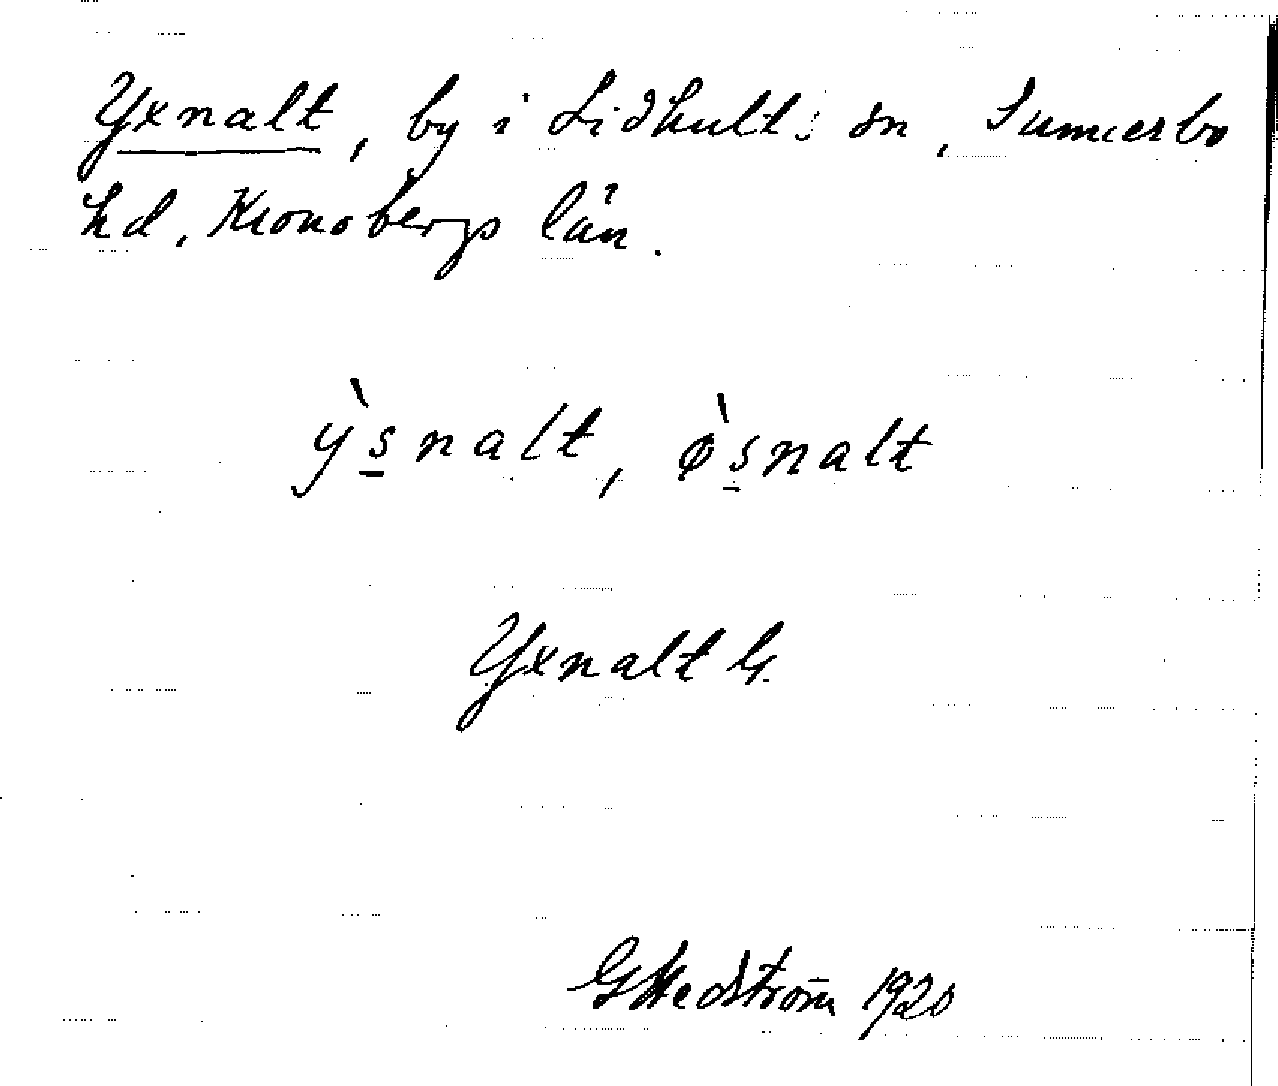 Yxnalt, by i Lidhults sn, Sunnerbo
hd, Kronobergs län.
ỳs̲nalt, ø̀s̲nalt
Yxnalt G.
G Hedström 1920